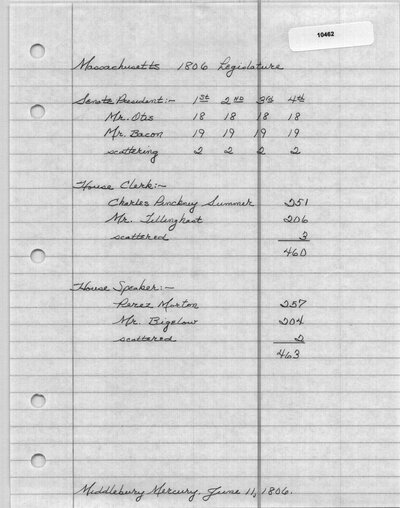 10462
Massachusetts 1806 Legislature
Senate President:- 1st 2nd 3rd 4th
Mr. Otis 18 18 18 18
Mr. Bacon 19 19 19 19
scattering 2 2 2 2
House Clerk:-
Charles Pinckney Summer 251
Mr. Tillinghast 206
scattered 3
460
House Speaker:-
Perez Morton 257
Mr. Bigelow 204
scattered 2
463
Middlebury Mercury. June 11, 1806.